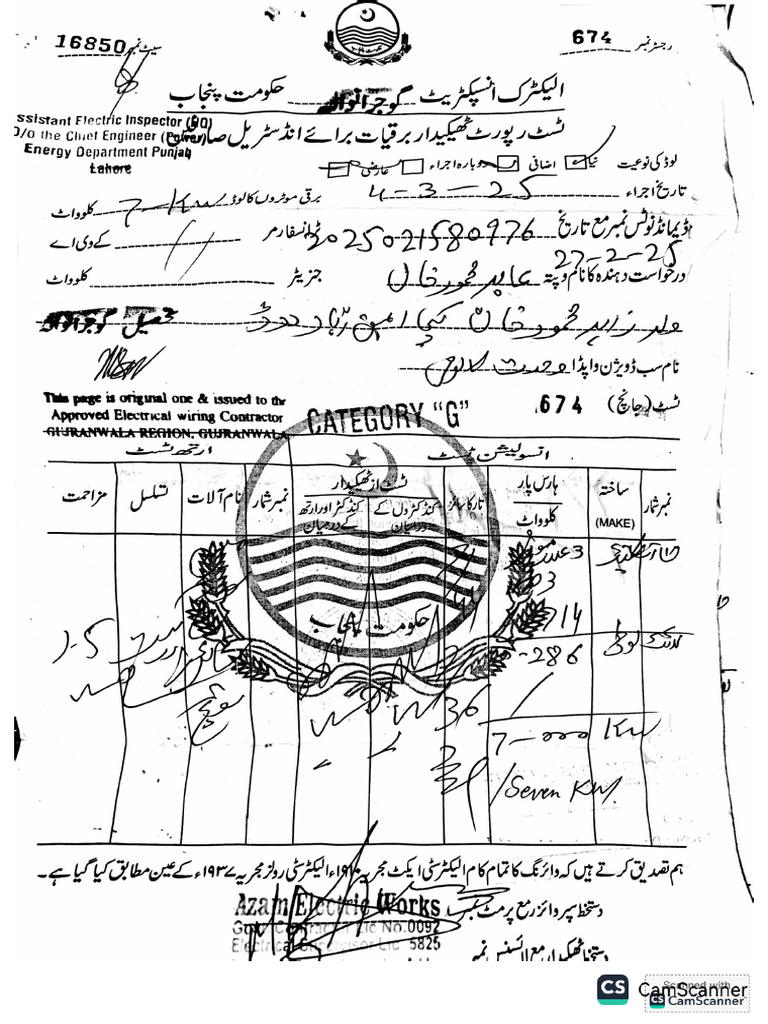 سیٹ نمبر 16850
رجسٹر نمبر 674
الیکٹرک انسپکٹریٹ گوجرانوالہ حکومت پنجاب
ssistant Electric Inspector
O/o the Chief Engineer (Power)
Energy Department Punjab
Lahore
ٹسٹ رپورٹ ٹھیکیدار برقیات برائے انڈسٹریل
لوڈ کی نوعیت نیا اضافی دوبارہ اجراء عارضی
تاریخ اجراء 4-3-25 برقی موٹروں کا لوڈ 7-KW کلوواٹ
ڈیمانڈ نوٹس نمبر مع تاریخ 2025021580976 ٹرانسفارمر کے وی اے
27-2-25
درخواست دہندہ کا نام و پتہ جنریٹر کلوواٹ
تحصیل گوجرانوالہ
نام سب ڈویژن واپڈا
This page is original one & issued to the
Approved Electrical wiring Contractor
GUJRANWALA REGION, GUJRANWALA
CATEGORY "G"
ٹسٹ (جانچ) 674
انسولیشن ٹسٹ ارتھ ٹسٹ
نمبر شمار ساختہ (MAKE) ہارس پاور کلوواٹ تار کا سائز ٹسٹ از ٹھیکیدار کنڈکٹروں کے درمیان کنڈکٹر اور ارتھ کے درمیان نمبر شمار نام آلات تسلسل مزاحمت
حکومت پنجاب
3 عدد
14
-286
1-5
36
7-000 KW
/Seven KW.
ہم تصدیق کرتے ہیں کہ وائرنگ کا تمام کام الیکٹرسٹی ایکٹ مجریہ ۱۹۱۰ء الیکٹرسٹی رولز مجریہ ۱۹۳۷ء کے عین مطابق کیا گیا ہے۔
دستخط سپروائزر مع پرمٹ نمبر
Azam Electric Works
Govt. Contractor Lic No.0092
Electrical Supervisor Lic 5825
دستخط ٹھیکیدار مع لائسنس نمبر
CS CamScanner
Scanned with
CS CamScanner